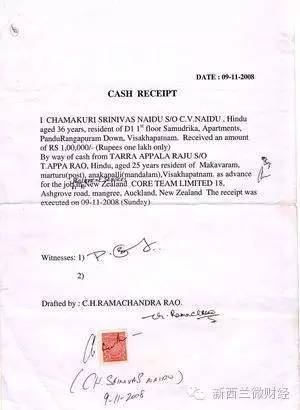 DATE : 09-11-2008
CASH RECEIPT
I CHAMAKURI SRINIVAS NAIDU S/O C.V.NAIDU , Hindu
aged 36 years, resident of D1 1st floor Samudrika, Apartments,
PanduRangapuram Down, Visakhapatnam. Received an amount
of RS 1,00,000/- (Rupees one lakh only)
By way of cash from TARRA APPALA RAJU S/O
T.APPA RAO, Hindu, aged 25 years resident of Makavaram,
marturu(post), anakapalli(mandalam),Visakhapatnam. as advance
for the job in New Zealand CORE TEAM LIMITED 18,
Ashgrove road, mangree, Auckland, New Zealand The receipt was
executed on 09-11-2008 (Sunday)
Witnesses: 1)
2)
Drafted by : C.H.RAMACHANDRA RAO.
(CH. SRINIVAS NAIDU)
9-11-2008
新西兰微财经